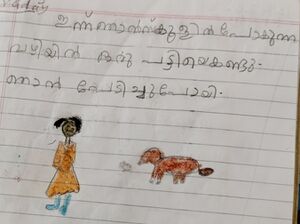 ഇന്ന് ഞാൻ സ്കൂളിൽ പോകുന്ന
വഴിയിൽ ഒരു പട്ടിയെ കണ്ടു.
ഞാൻ പേടിച്ചുപോയി.